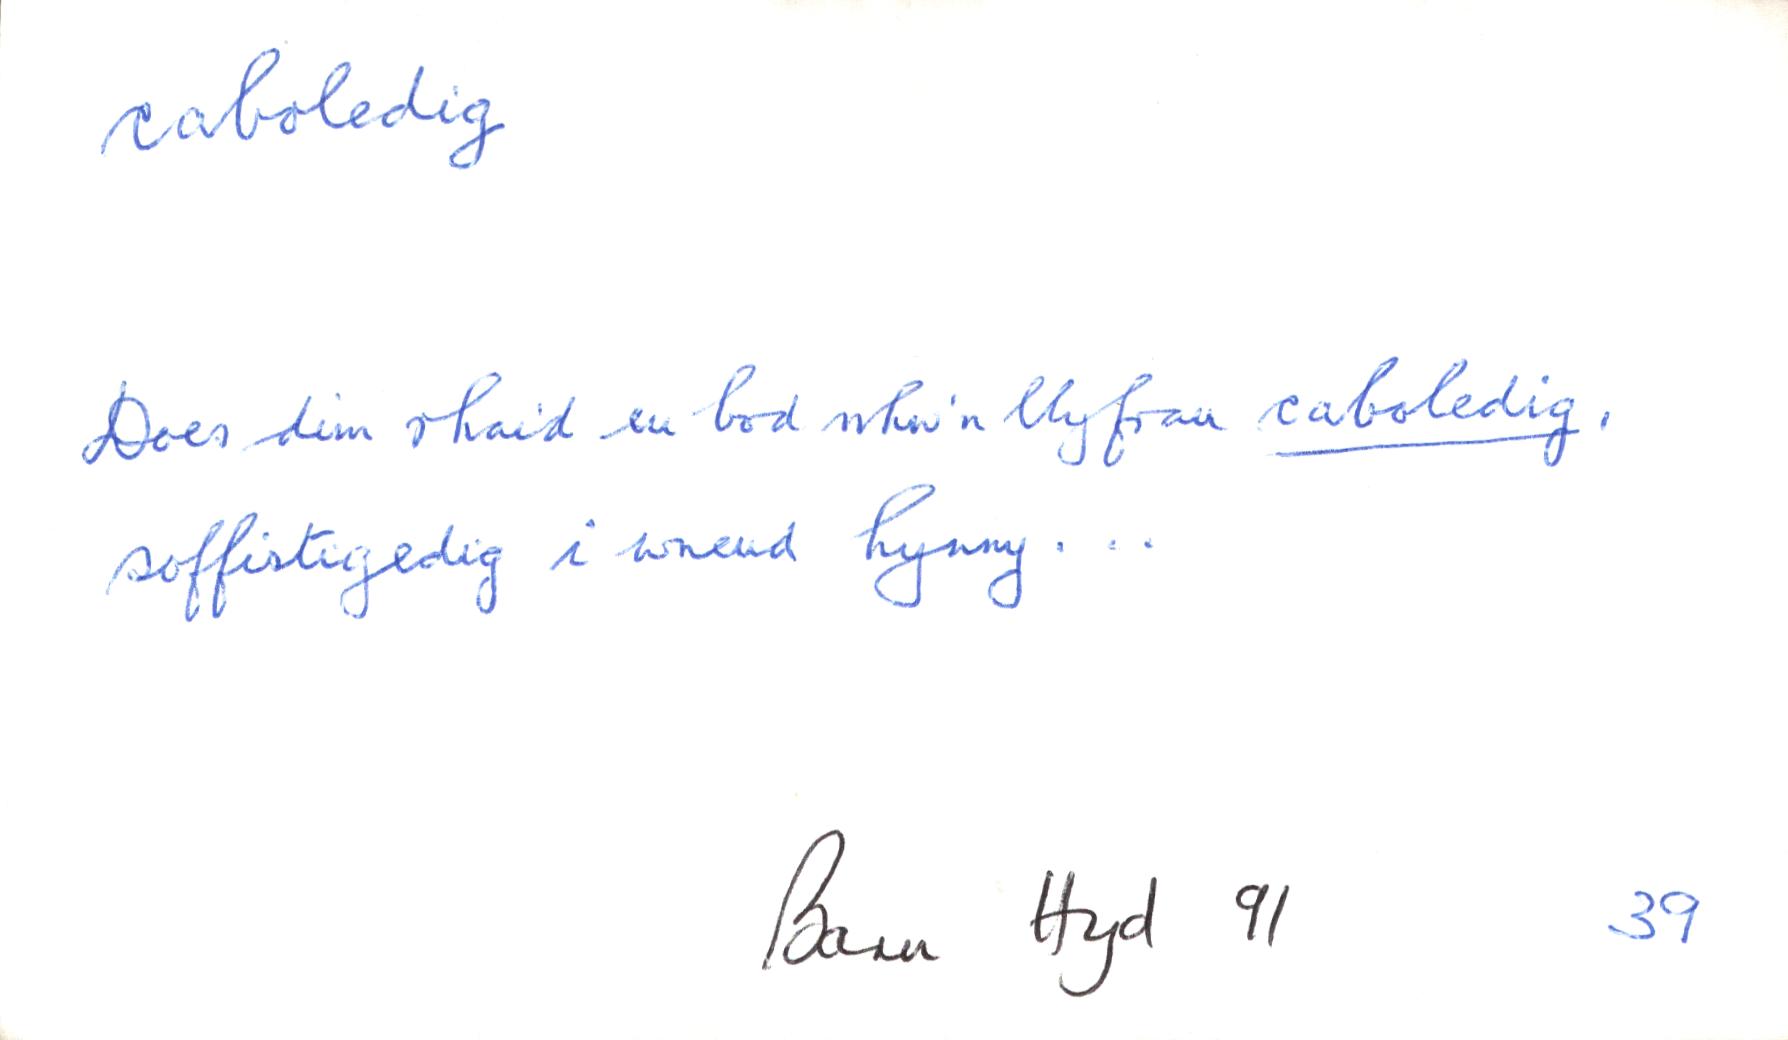 caboledig
Does dim rhaid eu bod nhw'n llyfrau caboledig,
soffistigedig i wneud hynny...
Barn Hyd 91 39